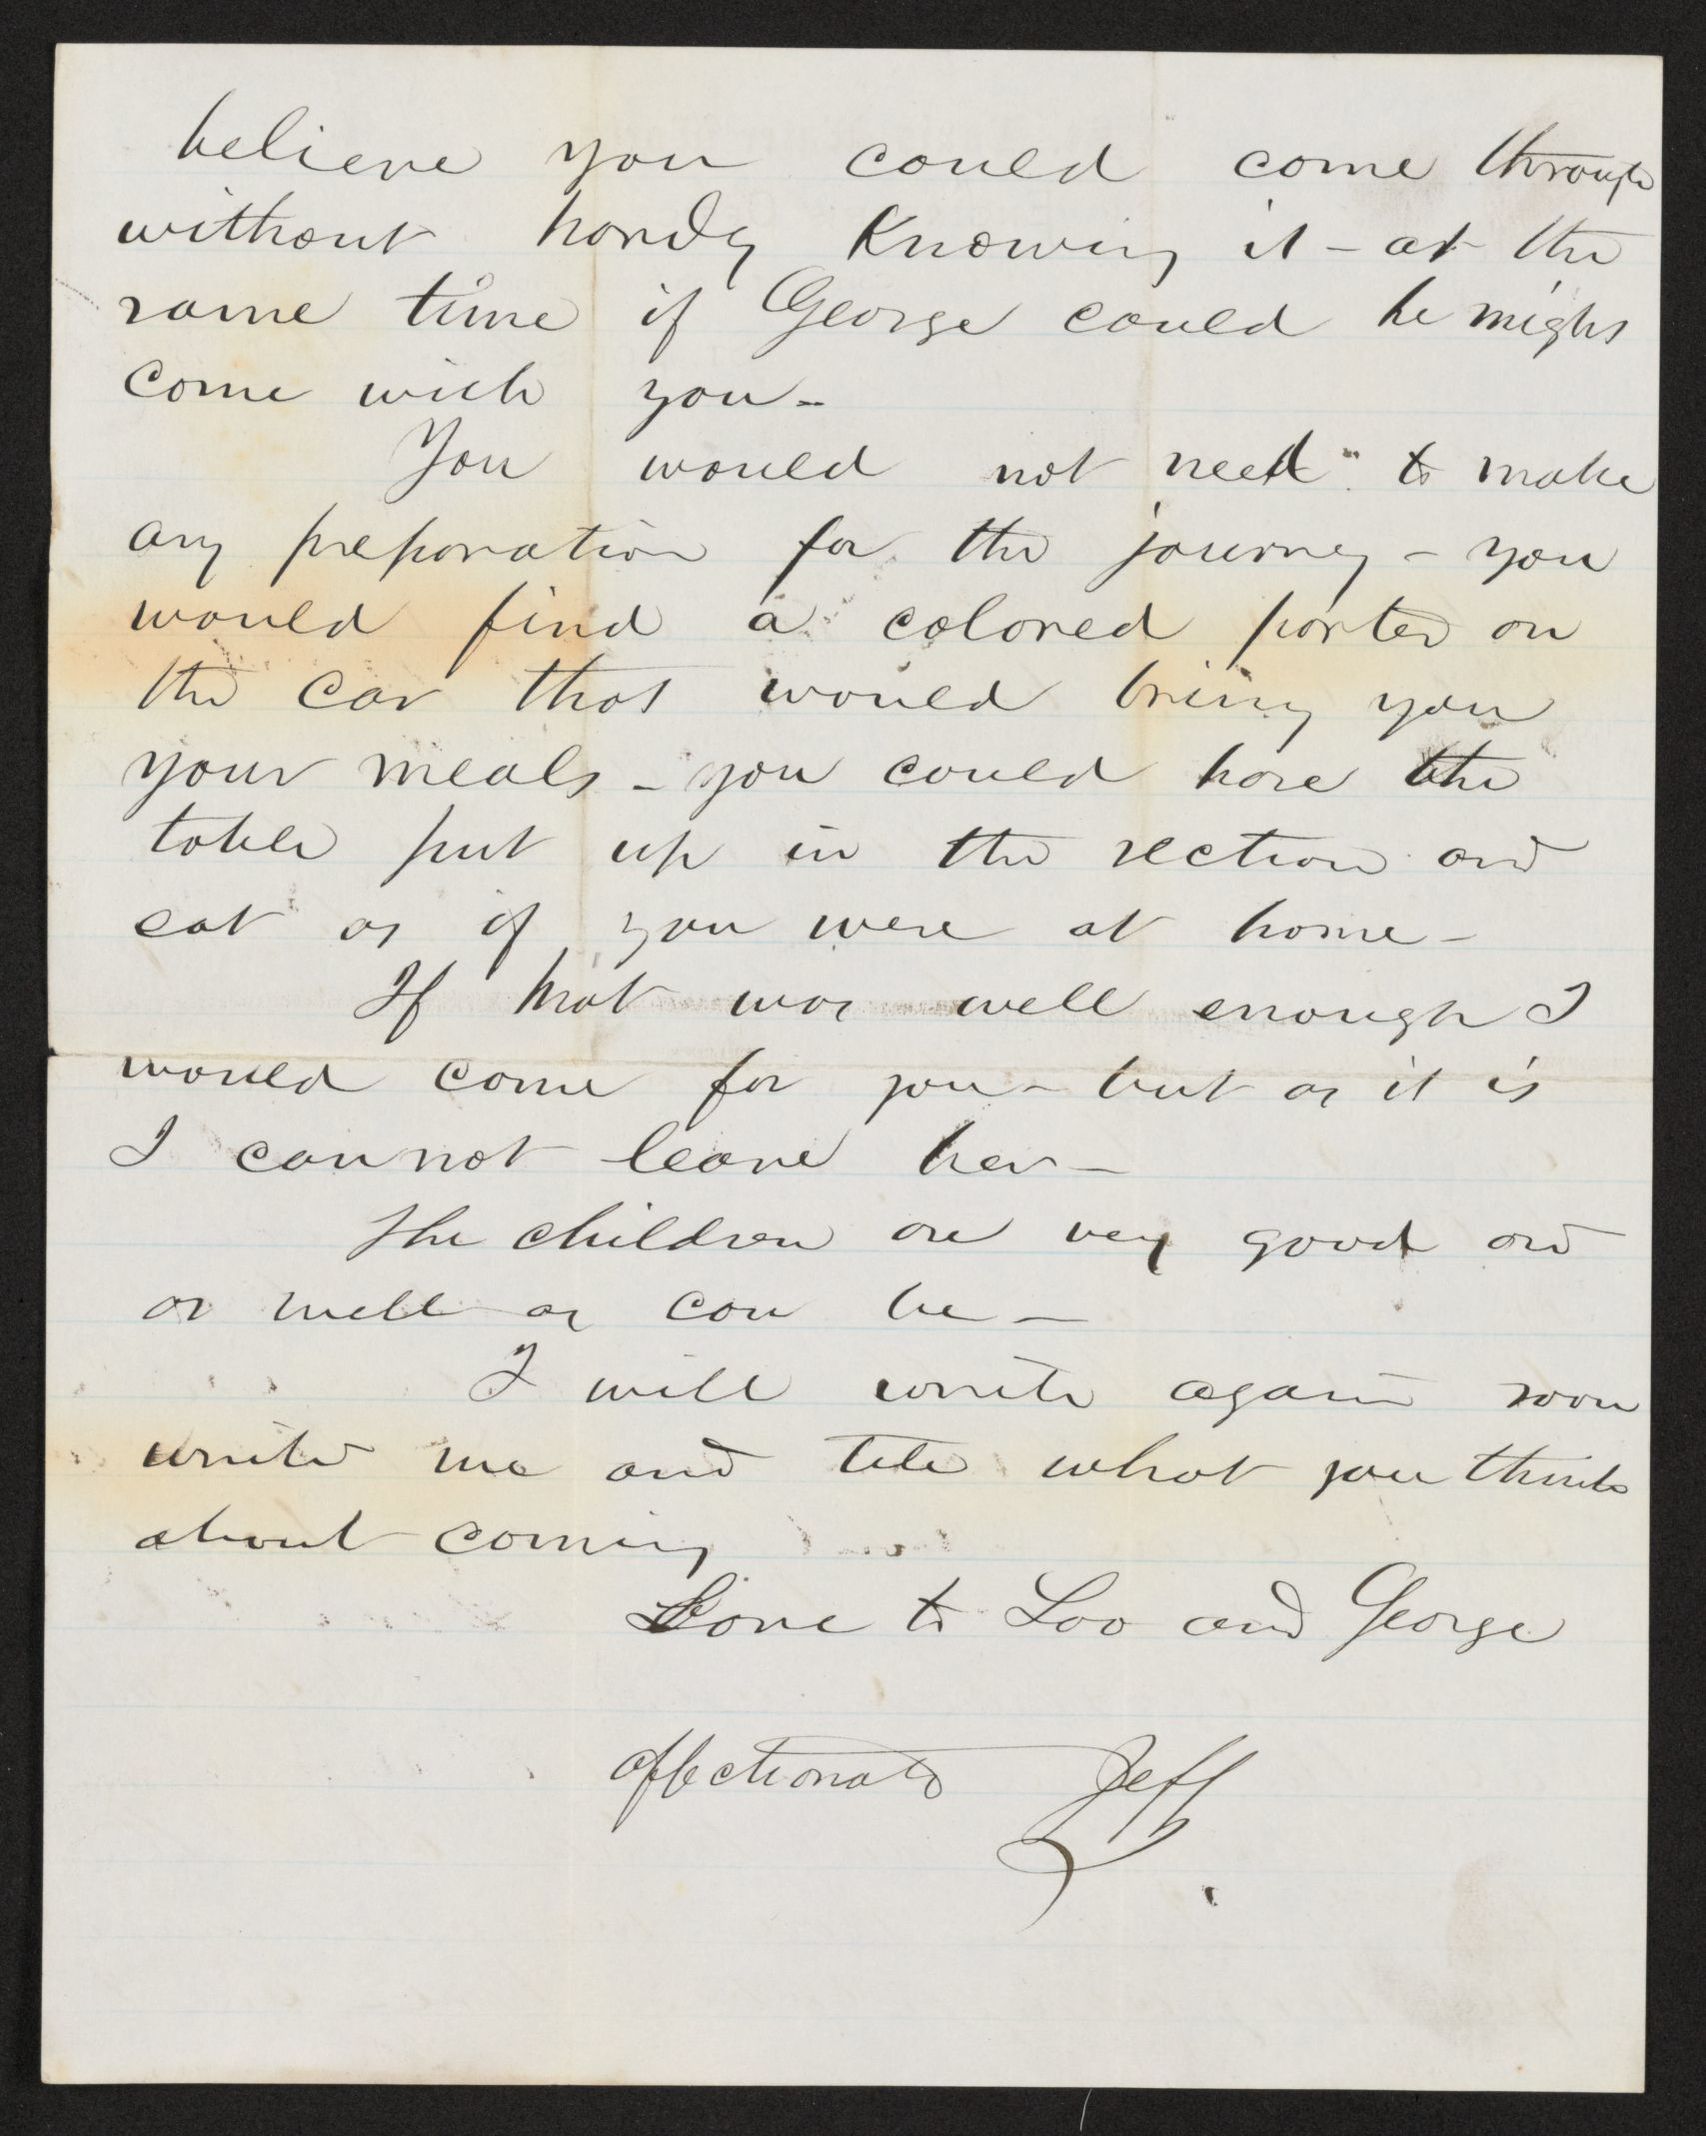 believe you could come through
without hardly knowing it – at the
same time if George could he might
come with you –
You would not need to make
any preparation for the journey – you
would find a colored porter on
the car that would bring you
your meals – you could have the
table put up in the section and
eat as if you were at home –
If Mat was well enough I
would come for you – but as it is
I cannot leave her –
The children are very good and
as well as can be –
I will write again soon
write me and tele what you think
about coming
Love to Loo and George
affectionate Jeff